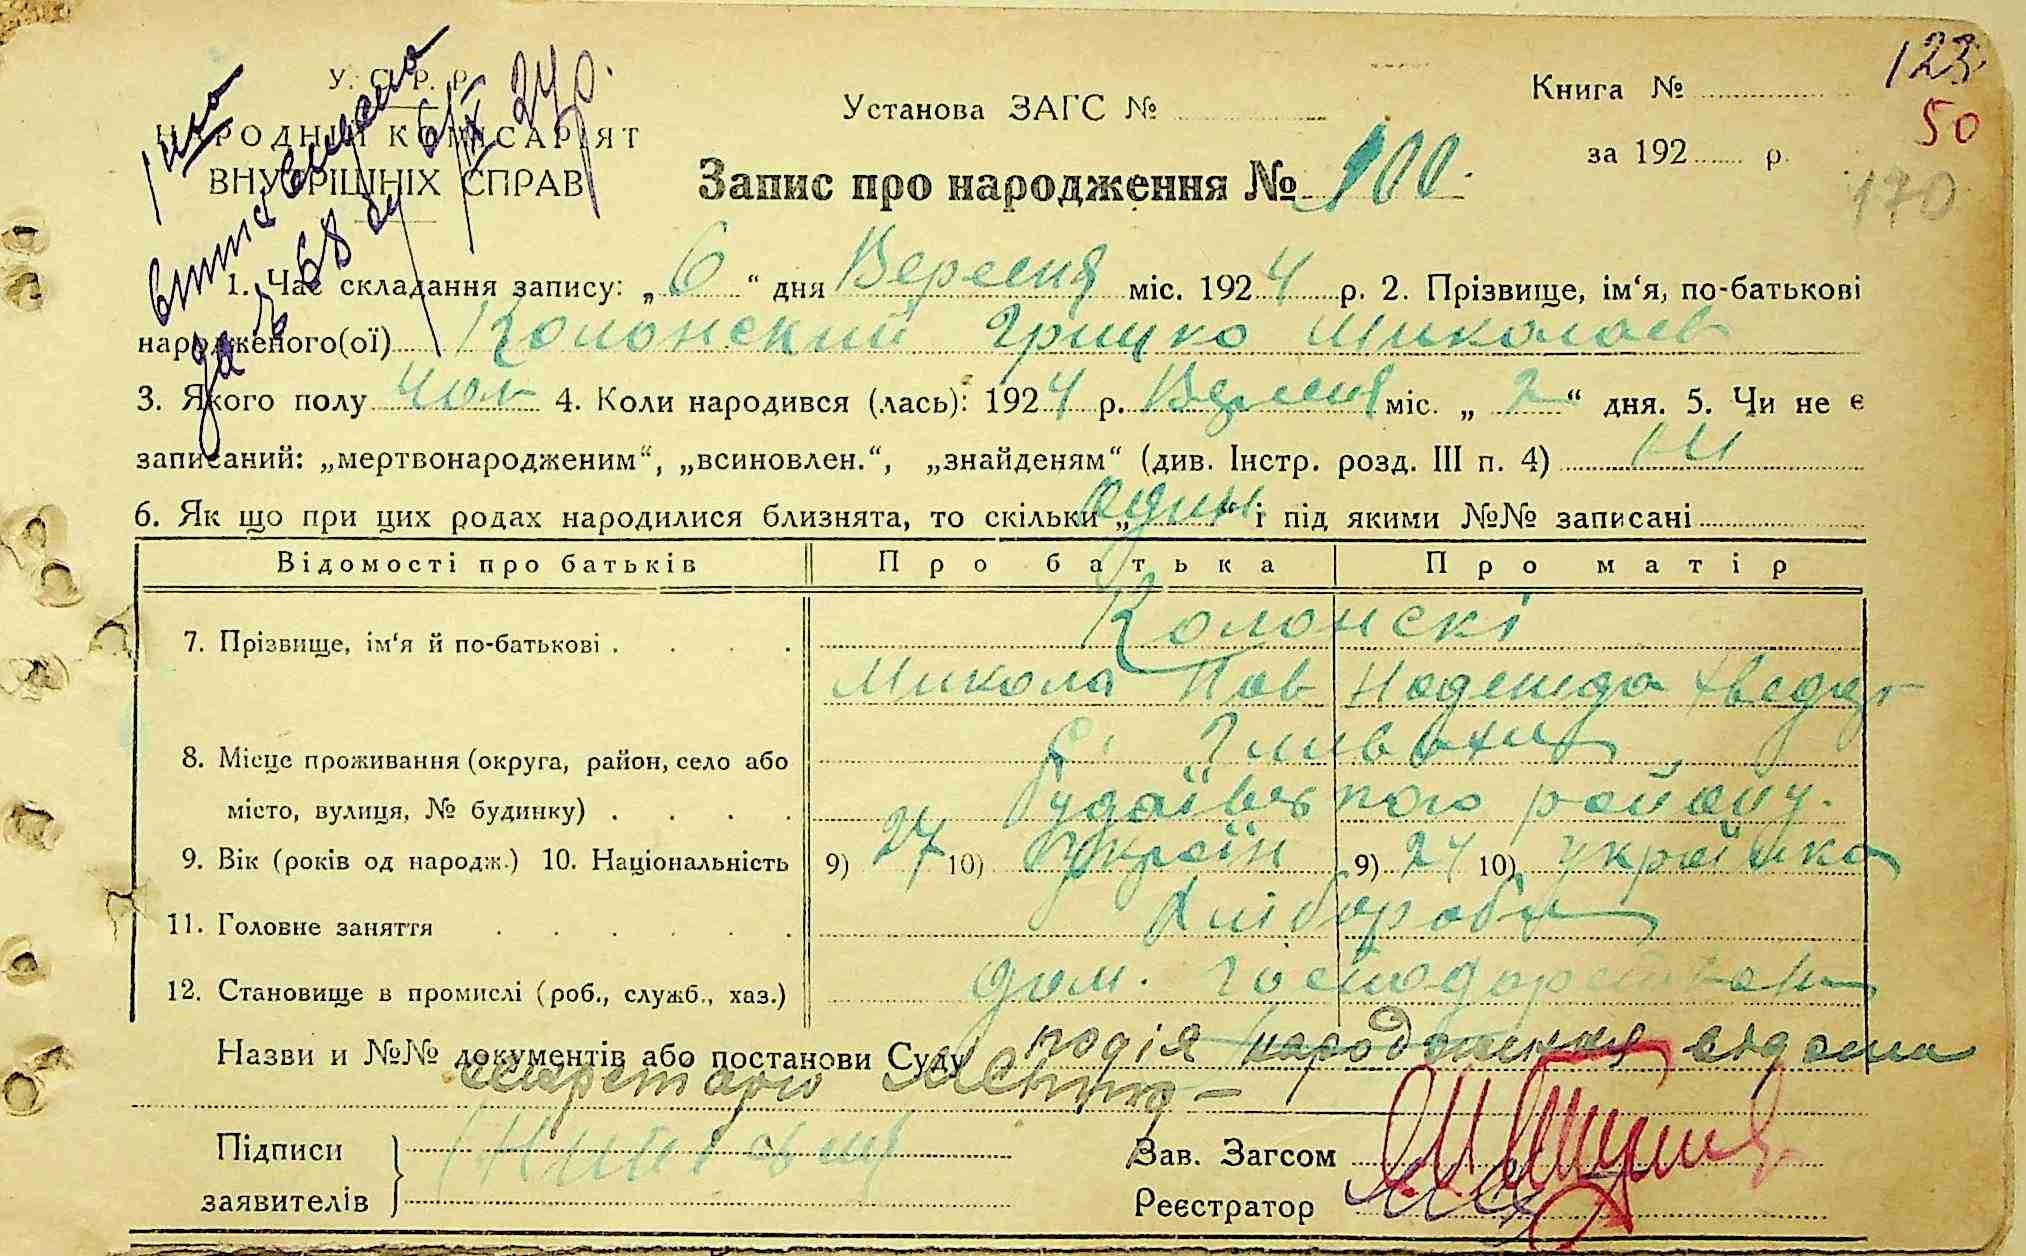 У. С. Р. Р.
НАРОДНІЙ КОМІСАРІЯТ
ВНУТРІШНІХ СПРАВ
виписано
за № 68 6/IX 24р.
Установа ЗАГС №
Запис про народження № 100.
Книга №
за 192 р.
123
50
170
1. Час складання запису: „ 6 “ дня Вересня міс. 1924 р. 2. Прізвище, ім‘я, по-батькові
народженого(ої) Колонский Грицко Миколаев
3. Якого полу чол 4. Коли народився (лась): 1924 р. Вересня міс. „ 2 “ дня. 5. Чи не є
записаний: „мертвонародженим“, „всиновлен.“, „знайденям“ (див. Інстр. розд. III п. 4) ни
6. Як що при цих родах народилися близнята, то скільки „ один “ і під якими №№ записані
Відомості про батьків Про батька Про матір
7. Прізвище, ім‘я й по-батькові Колонскі
Микола Пав Надежда Хведор
8. Місце проживання (округа, район, село або с. Гливахи
місто, вулиця, № будинку) Будаївського району.
9. Вік (років од народж.) 10. Національність 9) 27 10) Україн 9) 24 10) українка
11. Головне заняття Хлібороби
12. Становище в промислі (роб., служб., хаз.) дом. господарством
Назви и №№ документів або постанови Суду подія народження відома
секретарю
Підписи
заявителів
Зав. Загсом
Реєстратор